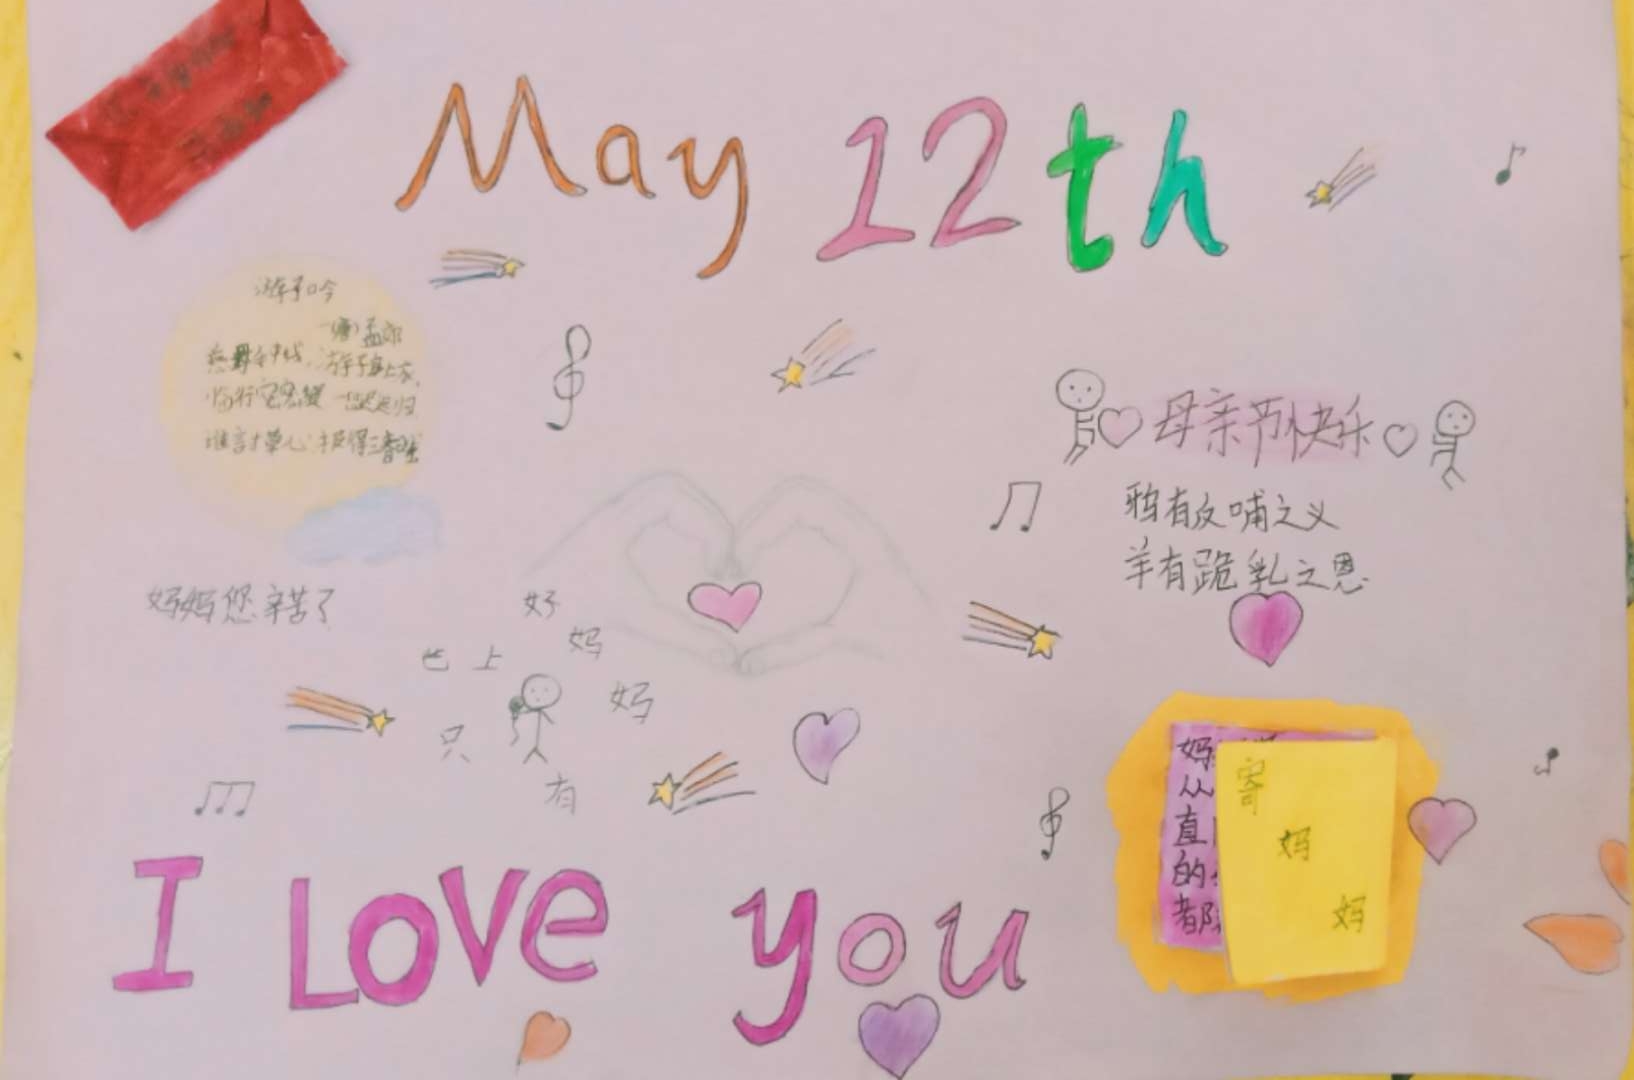 May 12th
游子吟
(唐)孟郊
慈母手中线,游子身上衣,
临行密密缝 恐迟迟归
谁言寸草心 报得三春晖
母亲节快乐
鸦有反哺之义
羊有跪乳之恩
妈妈您辛苦了
世上
只
有
妈
妈
好
妈
从
直
的
都
寄
妈
妈
I Love you